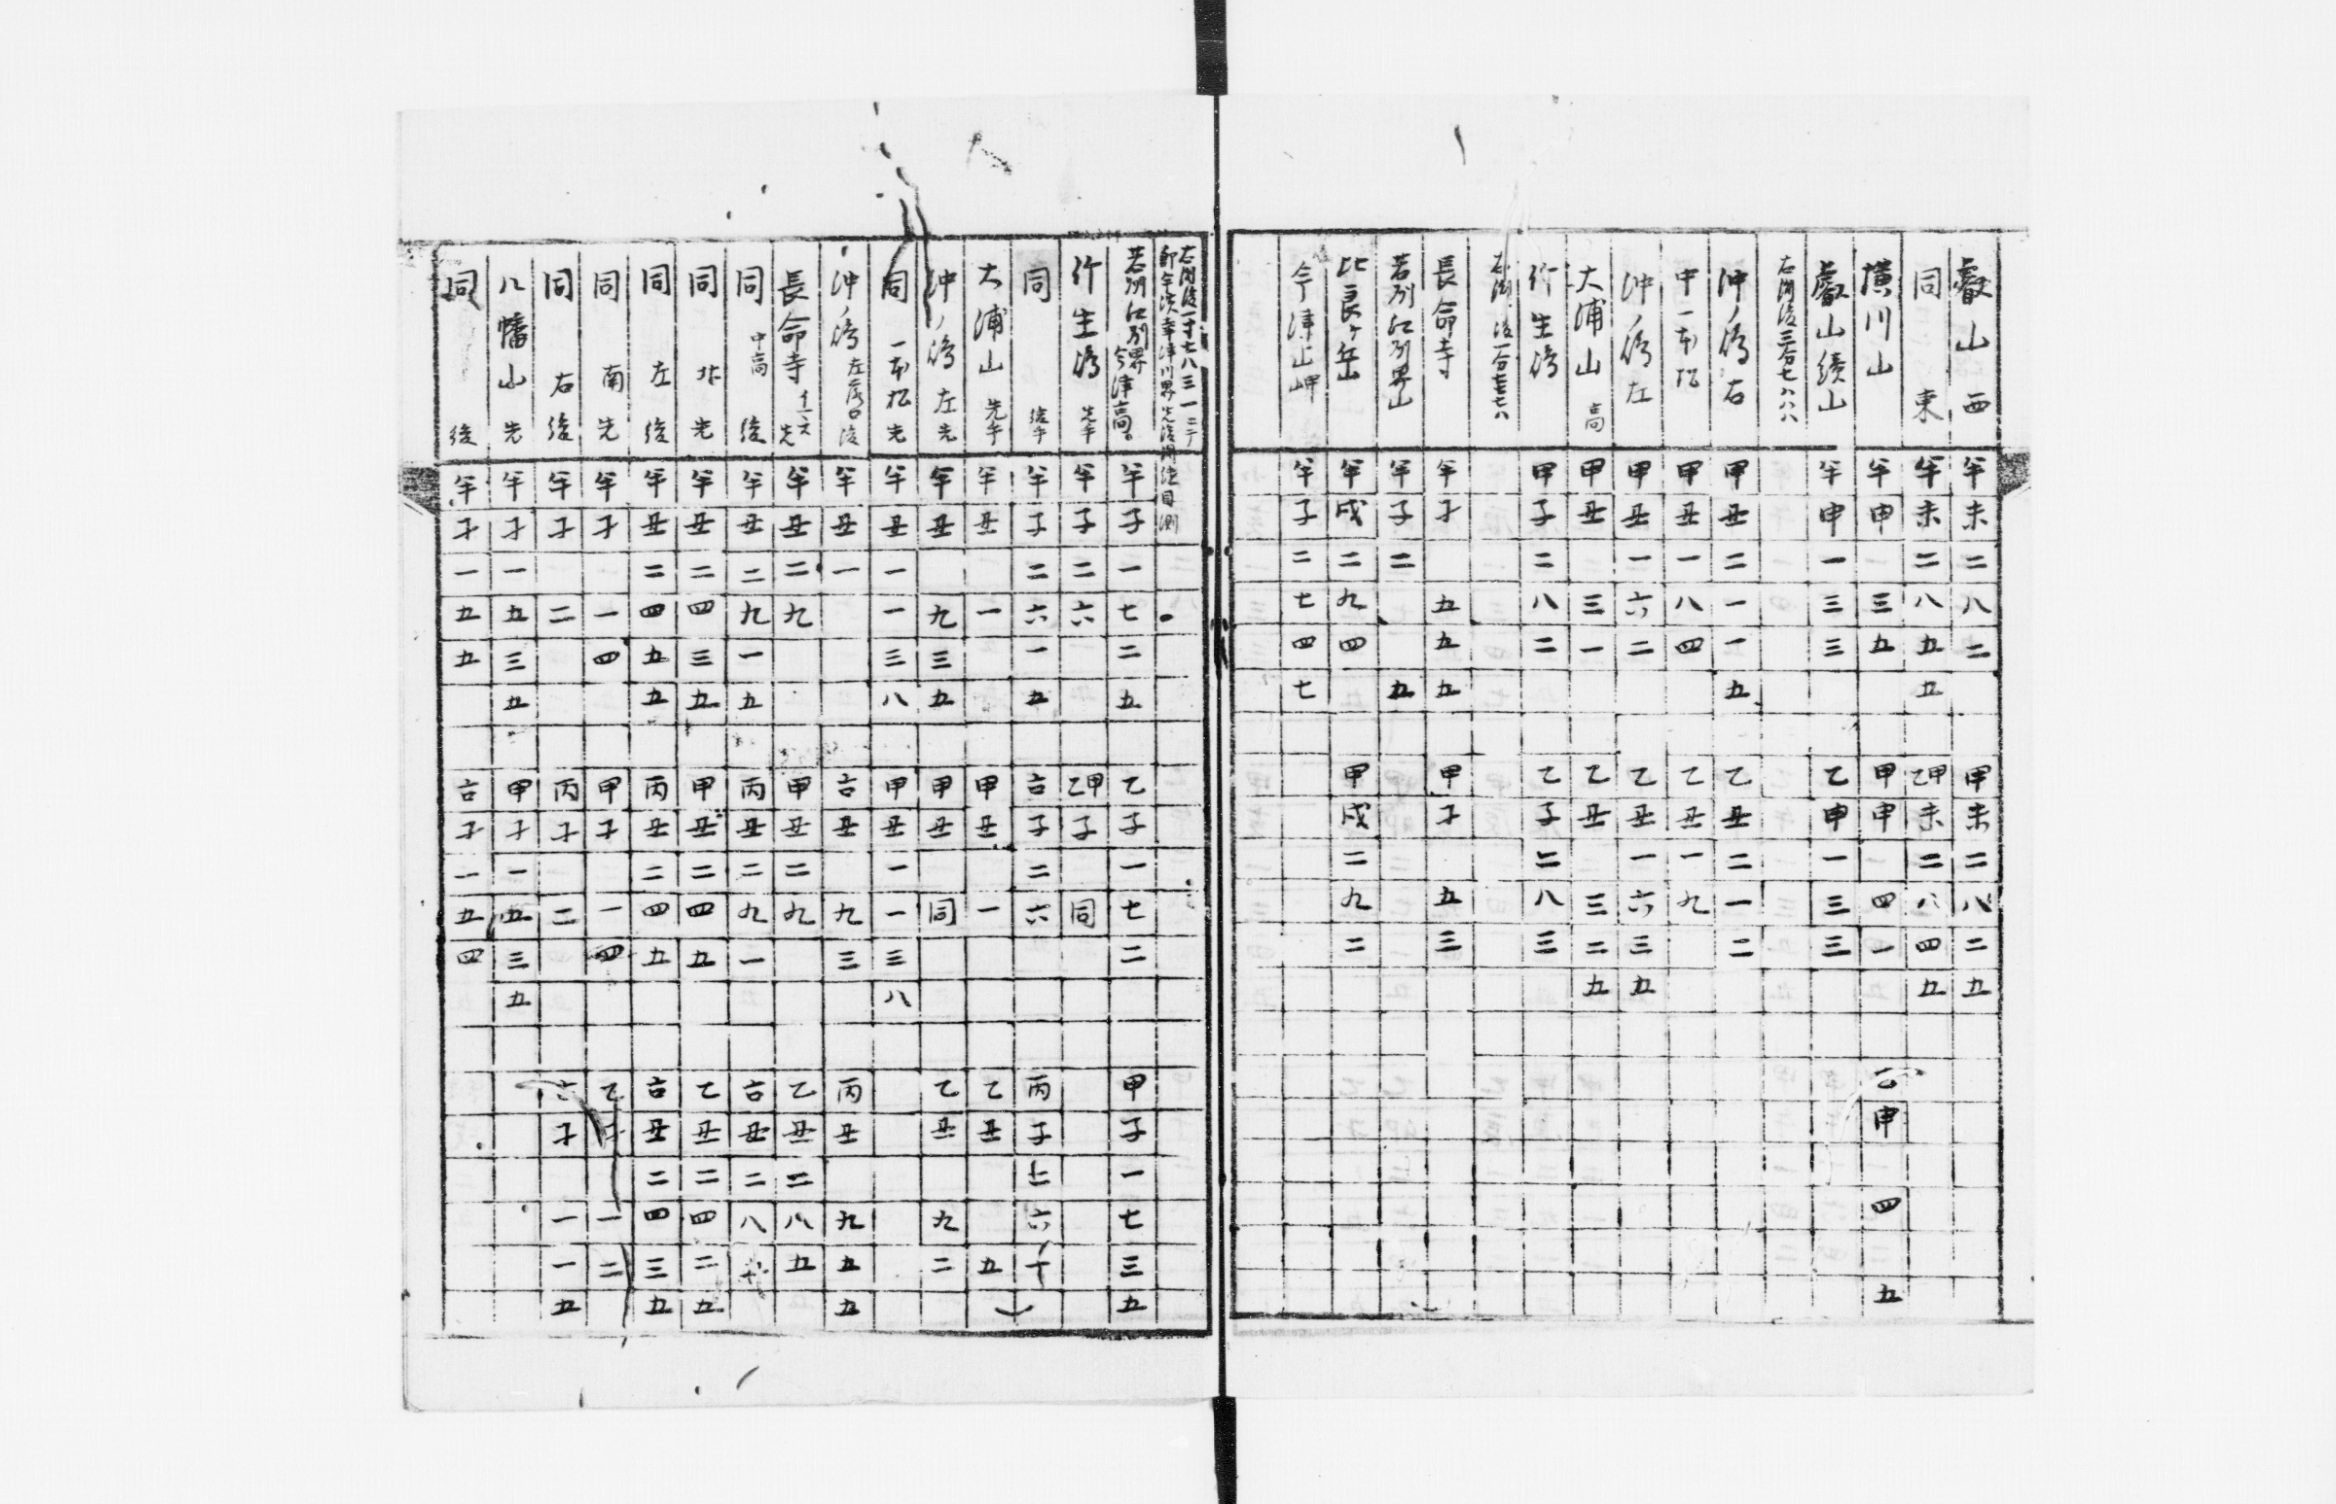 叡山 西 半未二八二 甲未二八二五
同 東 半未二八五五 乙甲未二八四五
横川山 半申一三五 甲申一四一 乙申四五
叡山續山 半申一三三 乙申一三三
右測後三分七八八八
沖ノ嶋 右 甲丑二一一五 乙丑二一二
中一本松 甲丑一八四 乙丑一九
沖ノ嶋 左 甲丑一六二 乙丑一六三五
大浦山 高 甲丑三一 乙丑三二五
竹生嶋 甲子二八二 乙子二八三
後一分七七八
長命寺 半子五五五 甲子五三
若州江州界山 半子二五
比良ヶ岳 半戌二九四 甲戌二九二
今津山岬 半子二七四七
右測後一寸七八三一
若州江州界 今津高 半子一七二五 乙子一七二 甲子一七三五
竹生嶋 先半 半子二六 乙甲子同
同 後半 半子二六一五 吉子二六 丙子二六十
大浦山 先半 半丑一 甲丑一 乙丑五
沖ノ嶋 左先 半丑九三五 甲丑同 乙丑九二
同 一本松 先 半丑一一三八 甲丑一一三八
沖ノ嶋 左 後 半丑一 吉丑九三 丙丑九五五
長命寺 先 半丑二九 甲丑二九 乙丑二八五
同 中高 後 半丑二九一五 丙丑二九一 吉丑二八
同 北 先 半丑二四三五 甲丑二四五 乙丑二四二五
同 左 後 半丑二四五五 丙丑二四五 吉丑二四三五
同 南 先 半子一四 甲子一四 乙一二
同 右 後 半子二 丙子二 吉子一一五
八幡山 先 半子一五三五 甲子一五三五
同 後 半子一五五 吉子一五四